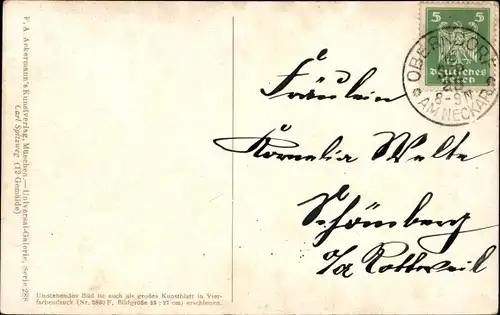 F. A. Ackermann's Kunstverlag, München. — Universal-Galerie, Serie 288
Carl Spitzweg (12 Gemälde)
Umstehendes Bild ist auch als großes Kunstblatt in Vier-
farbendruck (Nr. 2860 F, Bildgröße 15 : 27 cm) erschienen.
5 5
Deutsches
Reich
OBERNDORF
8-9 N
AM NECKAR
Fräulein
Kornelia Welte
Schömberg
o/a Rottweil